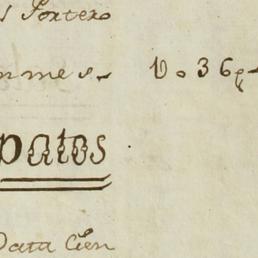 Portero
mes. Vo36p
patos
Data Cien